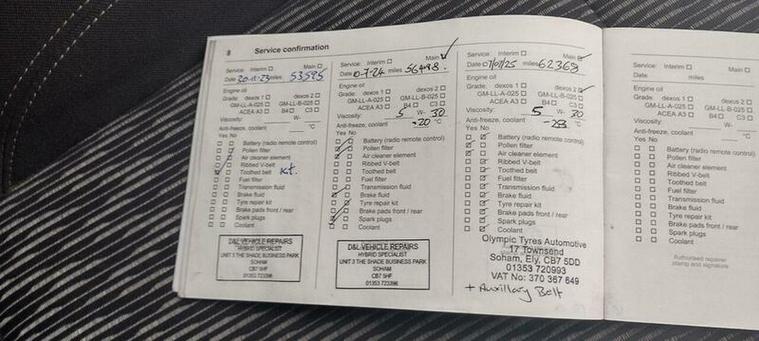 8 Service confirmation
Service: Interim Main
Date 20.12.23 miles 53595
Engine oil
Grade: dexos 1 dexos 2
GM-LL-A-025 GM-LL-B-025
ACEA A3 B4 C3
Viscosity: W-
Anti-freeze, coolant °C
Yes No
Battery (radio remote control)
Pollen filter
Air cleaner element
Ribbed V-belt
Toothed belt Kit.
Fuel filter
Transmission fluid
Brake fluid
Tyre repair kit
Brake pads front / rear
Spark plugs
Coolant
D&L VEHICLE REPAIRS
HYBRID SPECIALIST
UNIT 3 THE SHADE BUSINESS PARK
SOHAM
CB7 5HF
01353 723396
Service: Interim Main
Date 10-7-24 miles 56498.
Engine oil
Grade: dexos 1 dexos 2
GM-LL-A-025 GM-LL-B-025
ACEA A3 B4 C3
Viscosity: 5 W- 30
Anti-freeze, coolant -20 °C
Yes No
Battery (radio remote control)
Pollen filter
Air cleaner element
Ribbed V-belt
Toothed belt
Fuel filter
Transmission fluid
Brake fluid
Tyre repair kit
Brake pads front / rear
Spark plugs
Coolant
D&L VEHICLE REPAIRS
HYBRID SPECIALIST
UNIT 3 THE SHADE BUSINESS PARK
SOHAM
CB7 5HF
01353 723396
Service: Interim Main
Date 07/07/25 miles 62368
Engine oil
Grade: dexos 1 dexos 2
GM-LL-A-025 GM-LL-B-025
ACEA A3 B4 C3
Viscosity: 5 W- 30
Anti-freeze, coolant °C
Yes No
Battery (radio remote control)
Pollen filter
Air cleaner element
Ribbed V-belt
Toothed belt
Fuel filter
Transmission fluid
Brake fluid
Tyre repair kit
Brake pads front / rear
Spark plugs
Coolant
Olympic Tyres Automotive
17 Townsend
Soham, Ely, CB7 5DD
01353 720993
VAT No: 370 367 649
+ Auxillary Belt
Service: Interim Main
Date miles
Engine oil
Grade: dexos 1 dexos 2
GM-LL-A-025 GM-LL-B-025
ACEA A3 B4 C3
Viscosity: W-
Anti-freeze, coolant °C
Yes No
Battery (radio remote control)
Pollen filter
Air cleaner element
Ribbed V-belt
Toothed belt
Fuel filter
Transmission fluid
Brake fluid
Tyre repair kit
Brake pads front / rear
Spark plugs
Coolant
Authorised repairer
stamp and signature